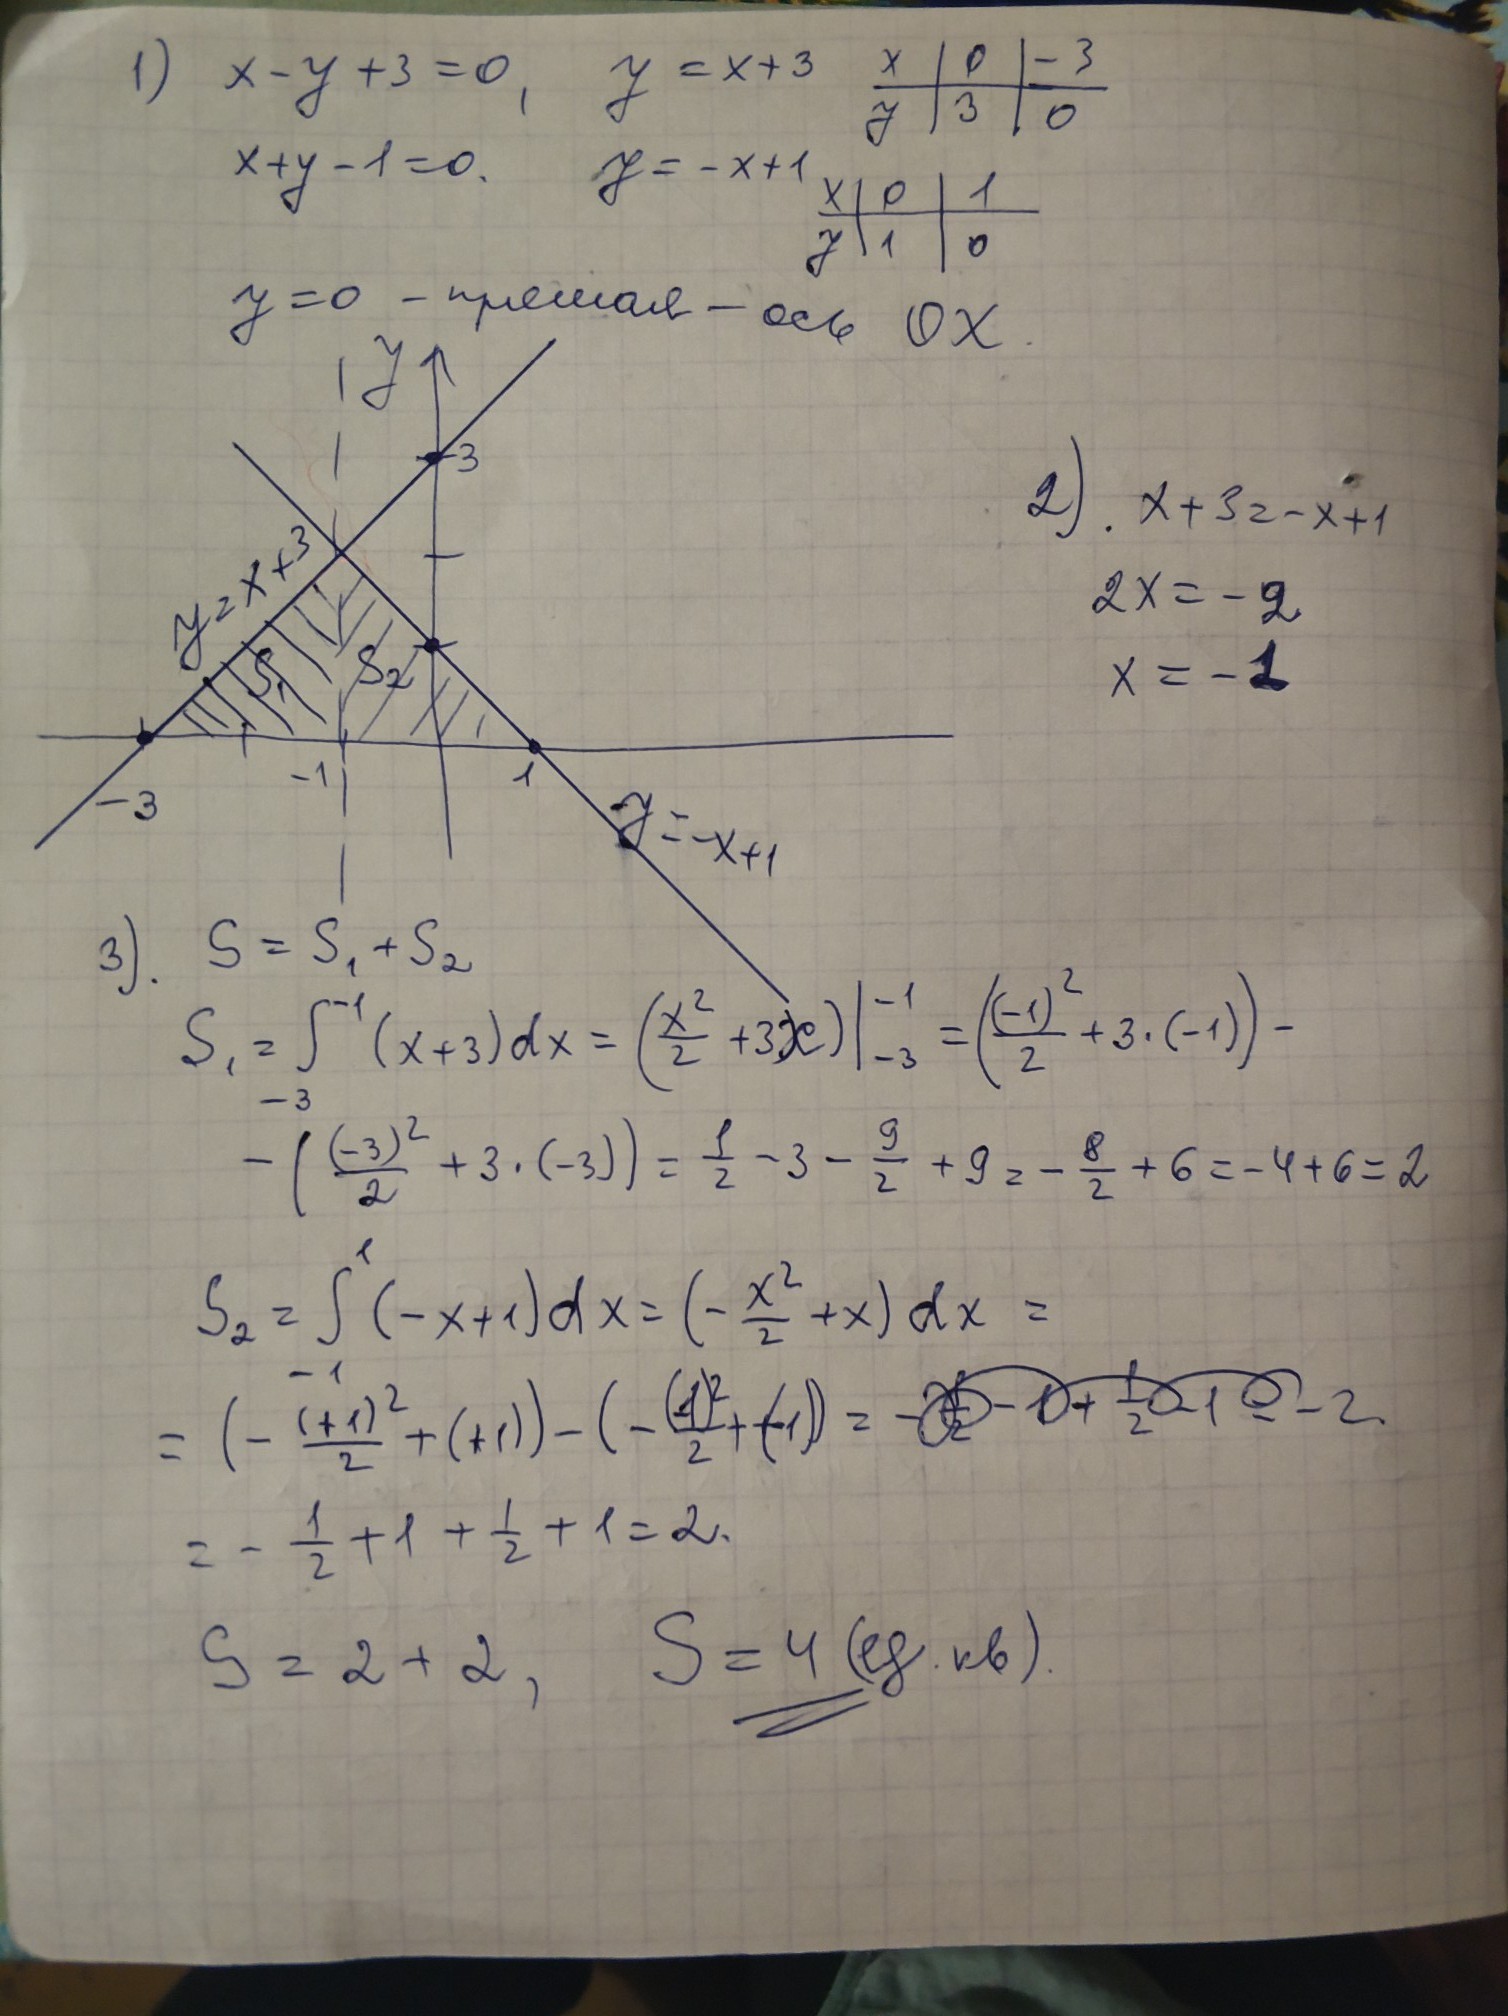 1) x - y + 3 = 0, y = x + 3 x | 0 | -3
y | 3 | 0
x + y - 1 = 0. y = -x + 1 x | 0 | 1
y | 1 | 0
y = 0 - прямая - ось OX.
y
3
y = x + 3
S₁ S₂
-3 -1 1
y = -x + 1
2). x + 3 = -x + 1
2x = -2
x = -1
3). S = S₁ + S₂
S₁ = ∫₋₃⁻¹ (x + 3)dx = (x²/2 + 3x)|₋₃⁻¹ = ((-1)²/2 + 3·(-1)) -
- ((-3)²/2 + 3·(-3)) = 1/2 - 3 - 9/2 + 9 = -8/2 + 6 = -4 + 6 = 2
S₂ = ∫₋₁¹ (-x + 1)dx = (-x²/2 + x)dx =
= (-(+1)²/2 + (+1)) - (-(-1)²/2 + (-1)) = - 1 + 1/2 - 1 = -2.
= -1/2 + 1 + 1/2 + 1 = 2.
S = 2 + 2, S = 4 (ед. кв).